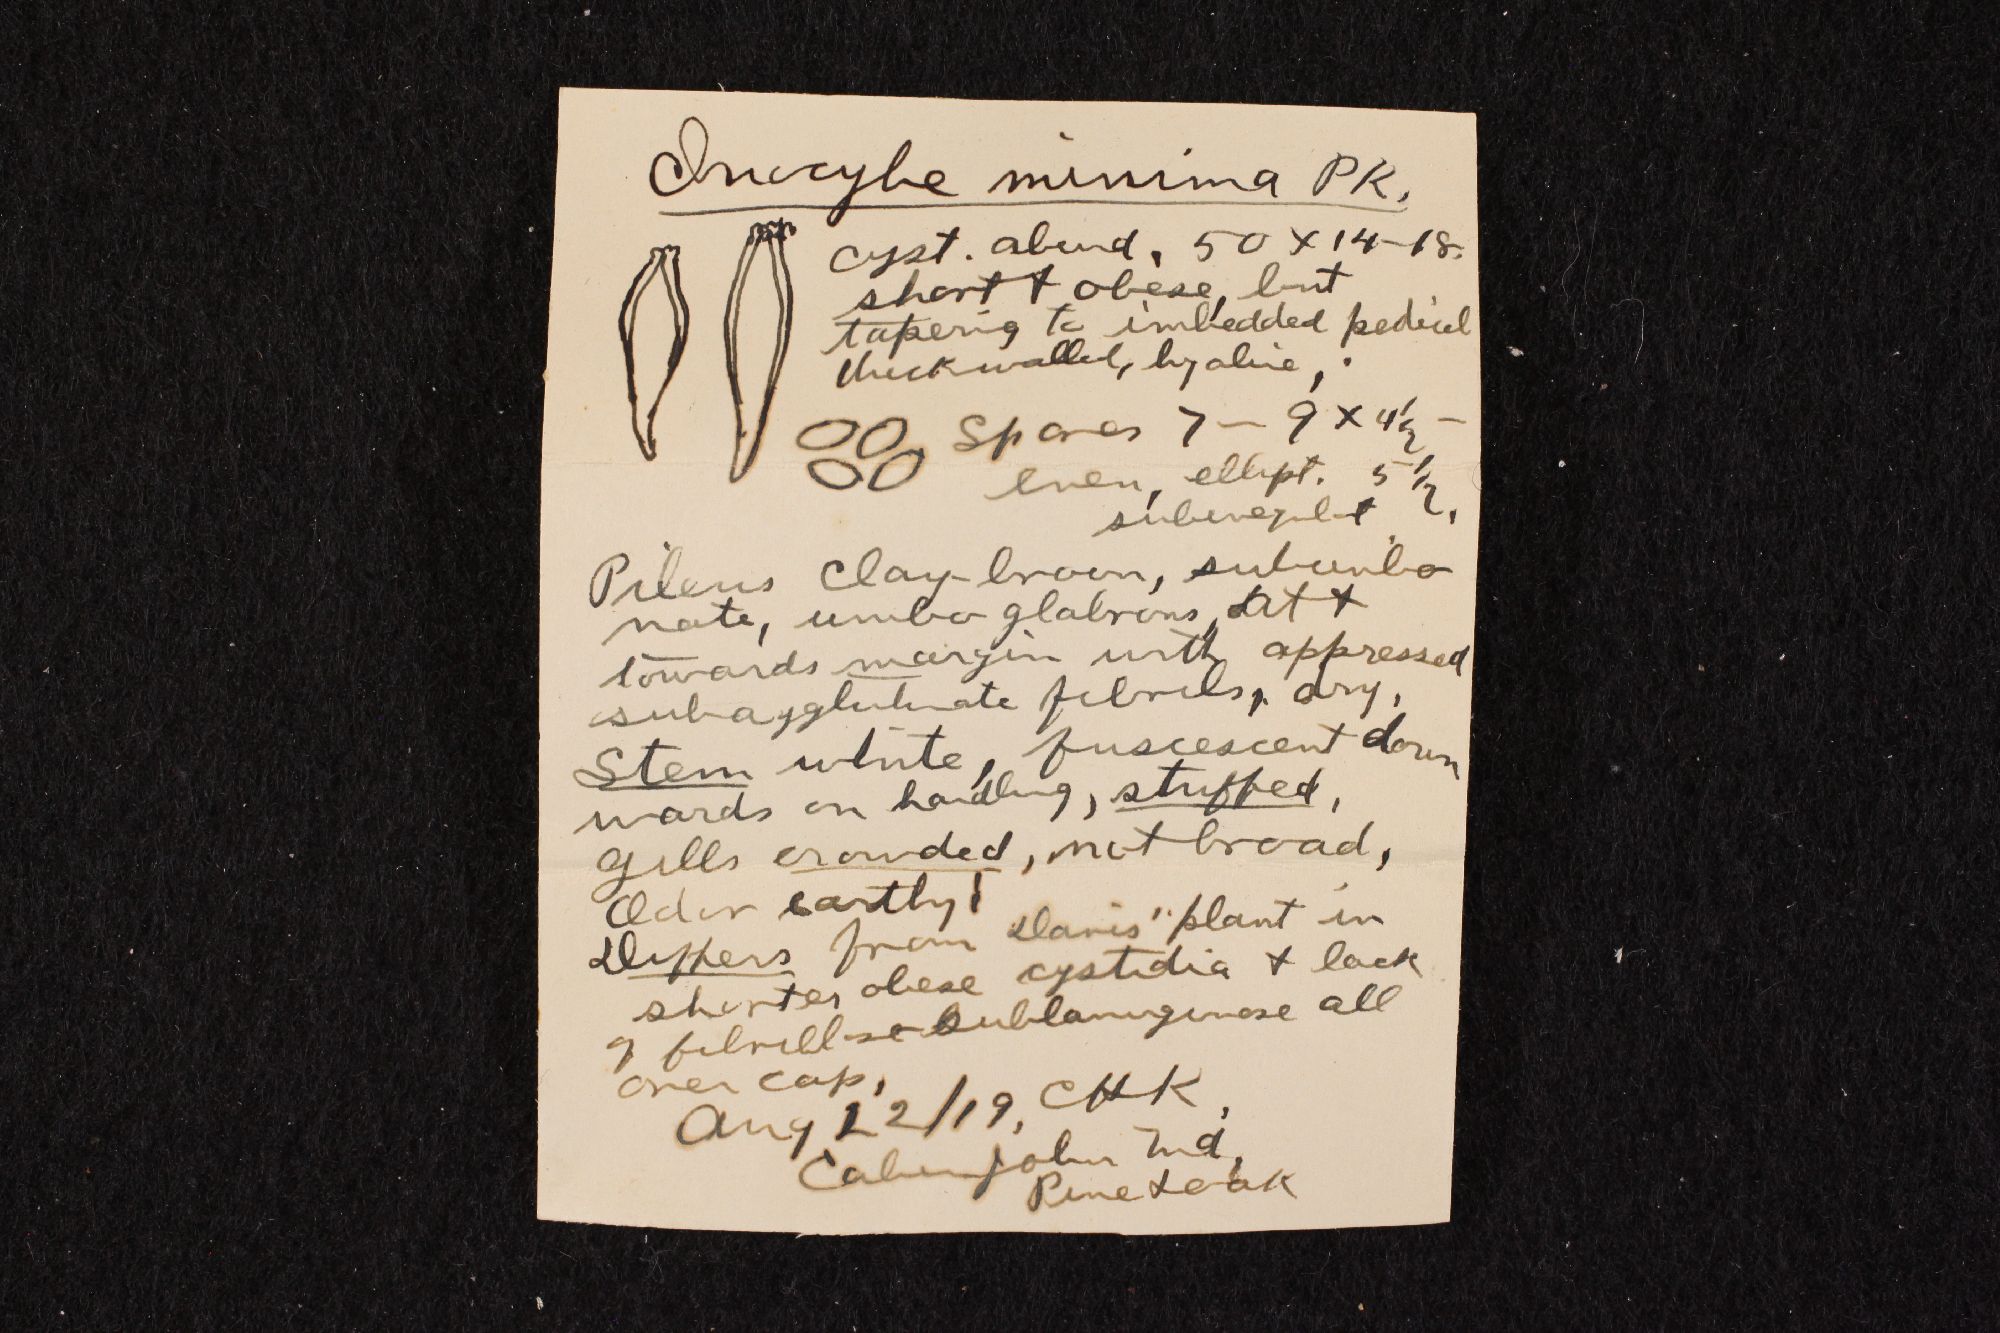 Inocybe minima PK.
cyst. abund, 50 x 14-18.
short + obese, but
tapering to imbedded pedicel
thick walled, hyaline,
Spores 7 - 9 x 4½ -
even, ellipt. 5½.
subirregular
Pileus clay-brown, subumbo
nate, umbo glabrous,
towards margin with appressed
subagglutinate fibrils, dry,
Stem white, fuscescent down
wards on handling, stuffed,
gills crowded, not broad,
Odor earthy!
Differs from Davis' plant in
shorter obese cystidia + lack
of fibrillose sublanuginose all
over cap,
Aug 22/19, CHK,
Cabinjohn Md,
Pine + oak